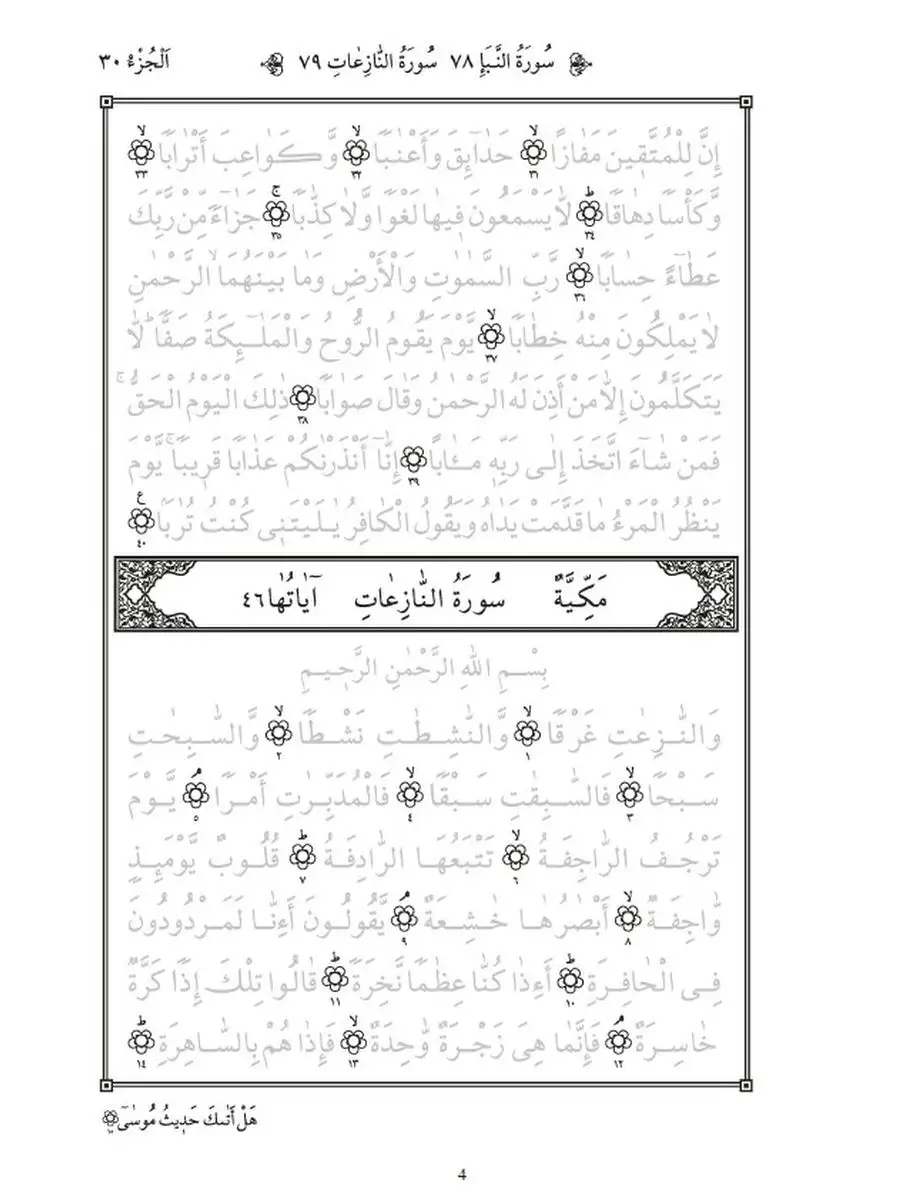 سُورَةُ النَّبَإِ ٧٨ سُورَةُ النَّازِعَاتِ ٧٩ اَلْجُزْءُ ٣٠
إِنَّ لِلْمُتَّقِينَ مَفَازًا ۙ ٣١ حَدَآئِقَ وَأَعْنٰبًا ۙ ٣٢ وَّكَوَاعِبَ أَتْرَابًا ۙ ٣٣
وَّكَأْسًا دِهَاقًا ۗ ٣٤ لَا يَسْمَعُونَ فِيهَا لَغْوًا وَّلَا كِذّٰبًا ۚ ٣٥ جَزَآءً مِّنْ رَّبِّكَ
عَطَآءً حِسَابًا ۙ ٣٦ رَّبِّ السَّمٰوٰتِ وَالْأَرْضِ وَمَا بَيْنَهُمَا الرَّحْمٰنِ
لَا يَمْلِكُونَ مِنْهُ خِطَابًا ۙ ٣٧ يَوْمَ يَقُومُ الرُّوحُ وَالْمَلٰٓئِكَةُ صَفًّا لَّا
يَتَكَلَّمُونَ إِلَّا مَنْ أَذِنَ لَهُ الرَّحْمٰنُ وَقَالَ صَوَابًا ٣٨ ذٰلِكَ الْيَوْمُ الْحَقُّ ۚ
فَمَنْ شَآءَ اتَّخَذَ إِلٰى رَبِّهٖ مَـٔابًا ٣٩ إِنَّآ أَنْذَرْنٰكُمْ عَذَابًا قَرِيبًا ۚ يَّوْمَ
يَنْظُرُ الْمَرْءُ مَا قَدَّمَتْ يَدَاهُ وَيَقُولُ الْكَافِرُ يٰلَيْتَنِي كُنْتُ تُرَابًا ع ٤٠
مَكِّيَّةٌ سُورَةُ النَّازِعَاتِ آيَاتُهَا ٤٦
بِسْمِ اللّٰهِ الرَّحْمٰنِ الرَّحِيمِ
وَالنّٰزِعٰتِ غَرْقًا ۙ ١ وَّالنّٰشِطٰتِ نَشْطًا ۙ ٢ وَّالسّٰبِحٰتِ
سَبْحًا ۙ ٣ فَالسّٰبِقٰتِ سَبْقًا ۙ ٤ فَالْمُدَبِّرٰتِ أَمْرًا ۘ ٥ يَوْمَ
تَرْجُفُ الرَّاجِفَةُ ۙ ٦ تَتْبَعُهَا الرَّادِفَةُ ط ٧ قُلُوبٌ يَّوْمَئِذٍ
وَّاجِفَةٌ ۙ ٨ أَبْصَارُهَا خٰشِعَةٌ ۘ ٩ يَقُولُونَ أَءِنَّا لَمَرْدُودُونَ
فِي الْحَافِرَةِ ط ١٠ أَءِذَا كُنَّا عِظٰمًا نَّخِرَةً ط ١١ قَالُوا تِلْكَ إِذًا كَرَّةٌ
خَاسِرَةٌ ۘ ١٢ فَإِنَّمَا هِيَ زَجْرَةٌ وَّاحِدَةٌ ۙ ١٣ فَإِذَا هُمْ بِالسَّاهِرَةِ ط ١٤
هَلْ أَتٰىكَ حَدِيثُ مُوسٰىٓ
4